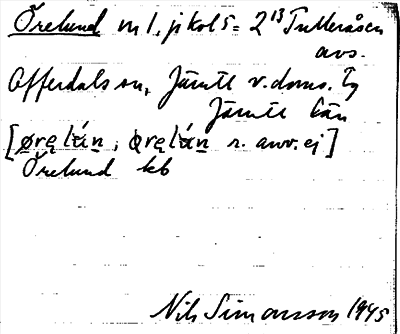 Örelund m 1, jkol 5 = 2¹³ Tulleråsen
avs.
Offerdals sn, Jämtl v. doms. tg
Jämtl län
[ørẹlán, ørẹlán r. anv. ej]
Örelund kb
Nils Simonsson 1945